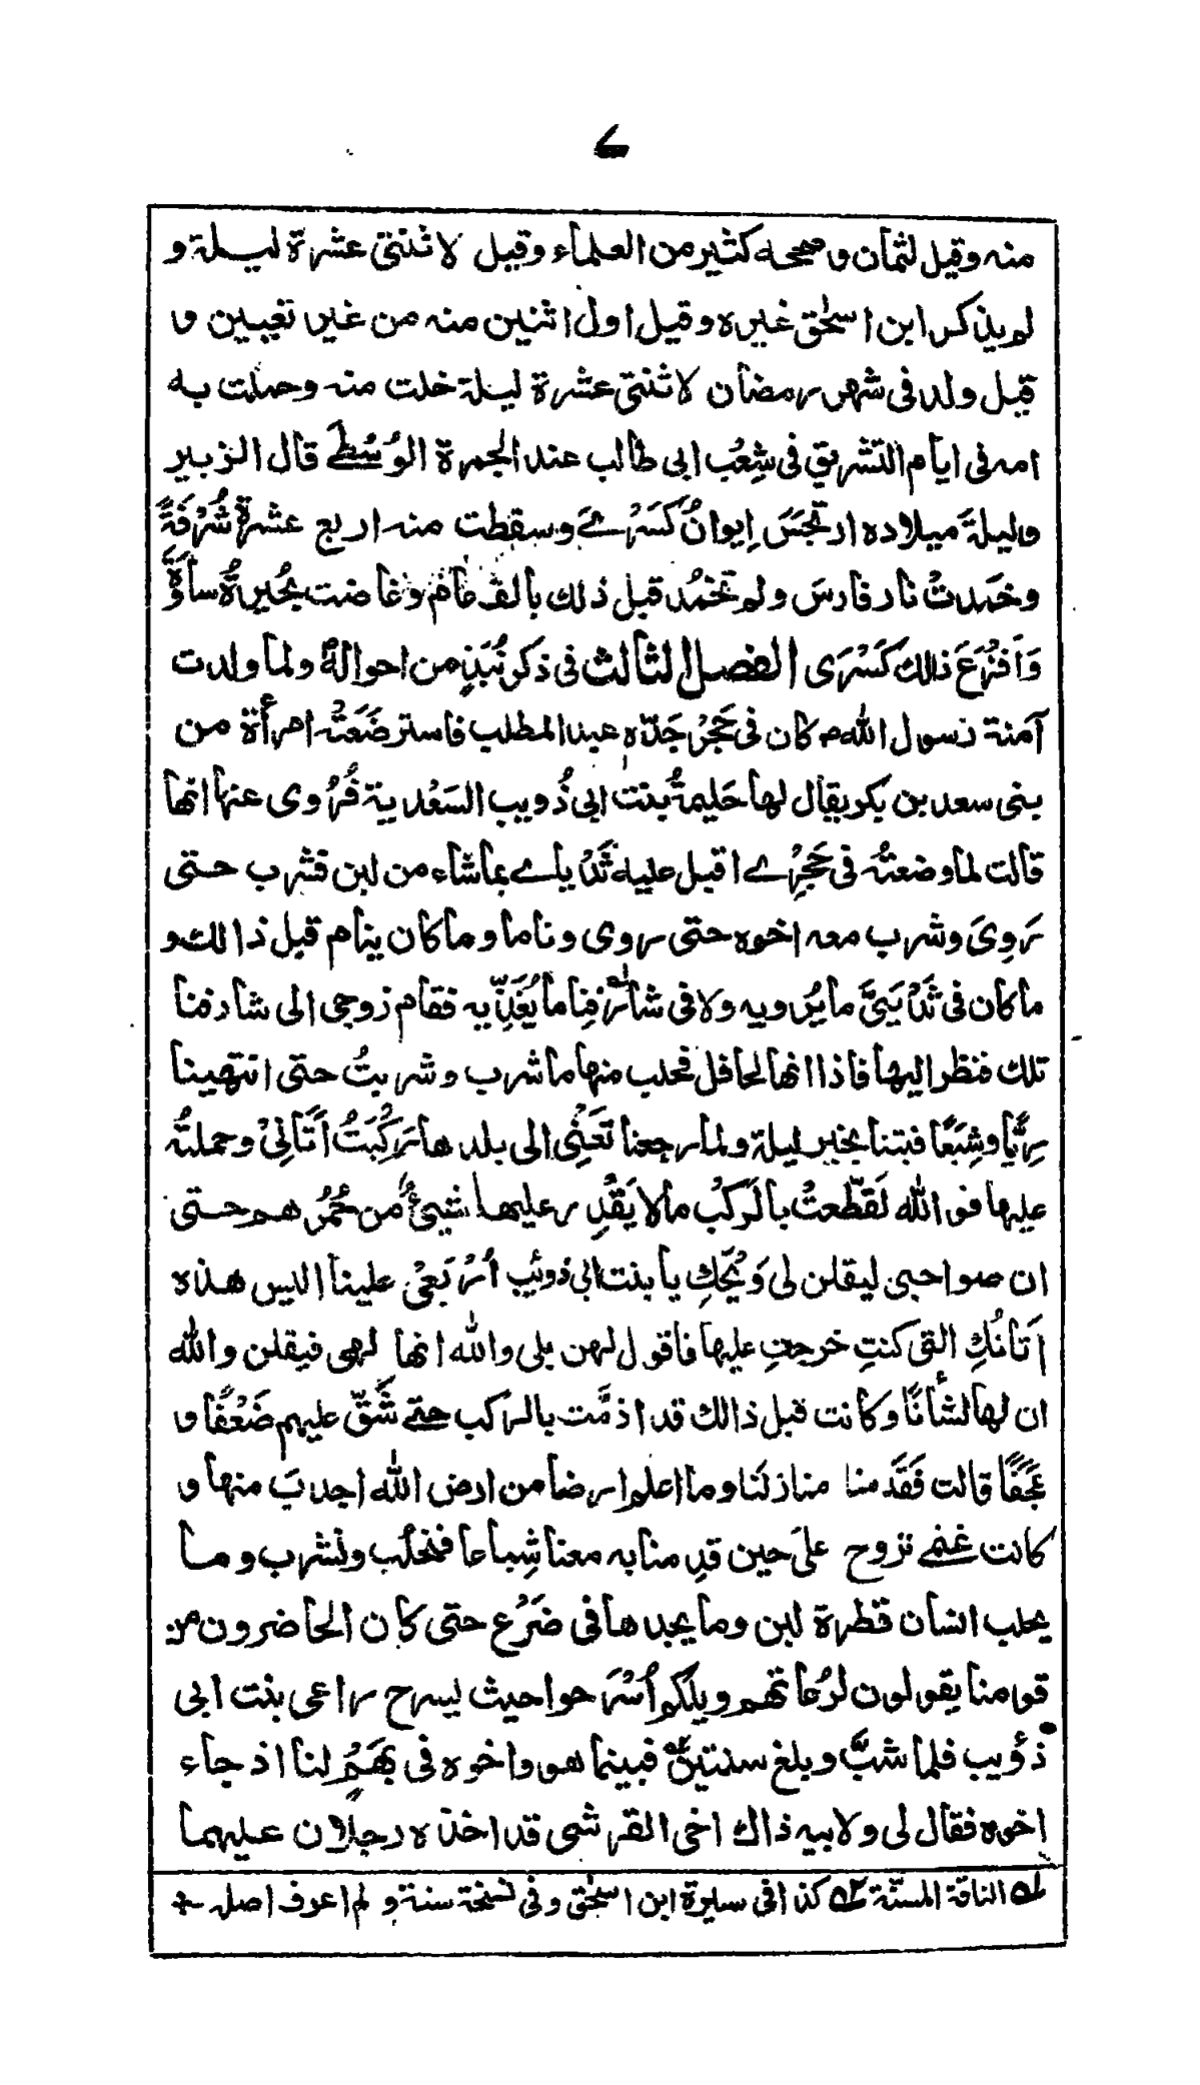 ۷
منه وقيل لثمان وصححه كثير من العلماء وقيل لاثنتى عشرة ليلة و
لم يذكر ابن اسحٰق غيره وقيل اول اثنين منه من غير تعيين و
قيل ولد فى شهر رمضان لاثنتى عشرة ليلة خلت منه وحملت به
امه فى ايام التشريق فى شِعْب ابى طالب عند الجمرة الوُسْطٰے قال الزبير
وليلةَ ميلاده ارتجسَ اِيوانُ كَسْرٰے وسقطت منه اربع عشرة شُرْفَةً
وخمدتْ نار فارسَ ولم تخمُد قبل ذلك بالف عام وغاضت بُحَيرةُ ساوَةَ
وَاَفْزَعَ ذالك كَسْرَى الفصل الثالث فى ذكر نُبَذٍ من احواله ولما ولدت
آمنة رسول الله م كان فى حَجْرِ جَدّه عبد المطلب فاسترضَعَتْه امرأة من
بنى سعد بن بكر يقال لها حَليمةُ بنت ابى ذُويب السَعْدية فرُوى عنها انها
قالت لما وضعتُه فى حَجْرِے اقبل عليه ثَدْياےَ بماشاء من لبن فشرب حتى
رَوِىَ وشرب معه اخوه حتى روى وناما وما كان ينام قبل ذالك و
ما كان فى ثَدْيَىَّ ما يُرويه ولا فى شارفِنا ما يُغَذّيه فقام زوجى الى شارفنا
تلك فنظر اليها فاذا انها لحافل فحلب منها ما شرب وشربتُ حتى انتهينا
رِيًّا وشِبَعًا فبتنا بخير ليلة ولما رجعنا تَعْنِى الى بلدها رَكِبَتُ اَتَانِىْ وحملتُه
عليها فو الله لَقَطّعتْ بالرَكْب ما لا يَقْدِر عليها شيئٌ من حُمُرِهم حتى
ان صواحبى ليقلن لى وَيْحَكِ يا بنت ابى ذوئيب اُرْبَعِىْ علينا اليس هذه
اَتَانُكِ التى كنتِ خرجتِ عليها فاقول لهن بلى والله انها لهى فيقلن والله
ان لها لشأنًا وكانت قبل ذالك قد اذمَّت بالركب حتے شَقّ عليهم ضَعْفًا و
عَجَفًا قالت فَقَدمنا منازلَنا وما اعلم ارضا من ارض الله اجدبَ منها و
كانت غنمے تروح علىَ حين قدِمنا به معنا شِباعا فنحلُب ونشرب وما
يحلب انسان قطرة لبن وما يجدها فى ضَرْع حتى كان الحاضرون من
قومنا يقولون لرُعاتهم ويلكم اُسْرَحوا حيث يسرح راعى بنت ابى
ذؤيب فلما شبَّ وبلغ سنتين فبينما هو واخوه فى بَهْمٍ لنا اذ جاء
اخوه فقال لى ولابيه ذاك اخى القرشى قد اخذه رجلان عليهما
له الناقة المسنّة ۲ه كذا فى سيرة ابن اسحٰق وفى نسخة سنة و لم اعرف اصله